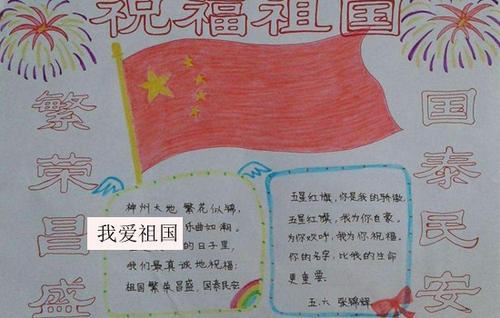 祝福祖国
繁荣昌盛
神州大地 繁花似锦,
乐曲如潮。
我爱祖国
的日子里,
我们最真诚地祝福:
祖国繁荣昌盛,国泰民安
五星红旗,你是我的骄傲
五星红旗,我为你自豪。
为你欢呼,我为你祝福。
你的名字,比我的生命
更重要
五.六 张锦辉
国泰民安